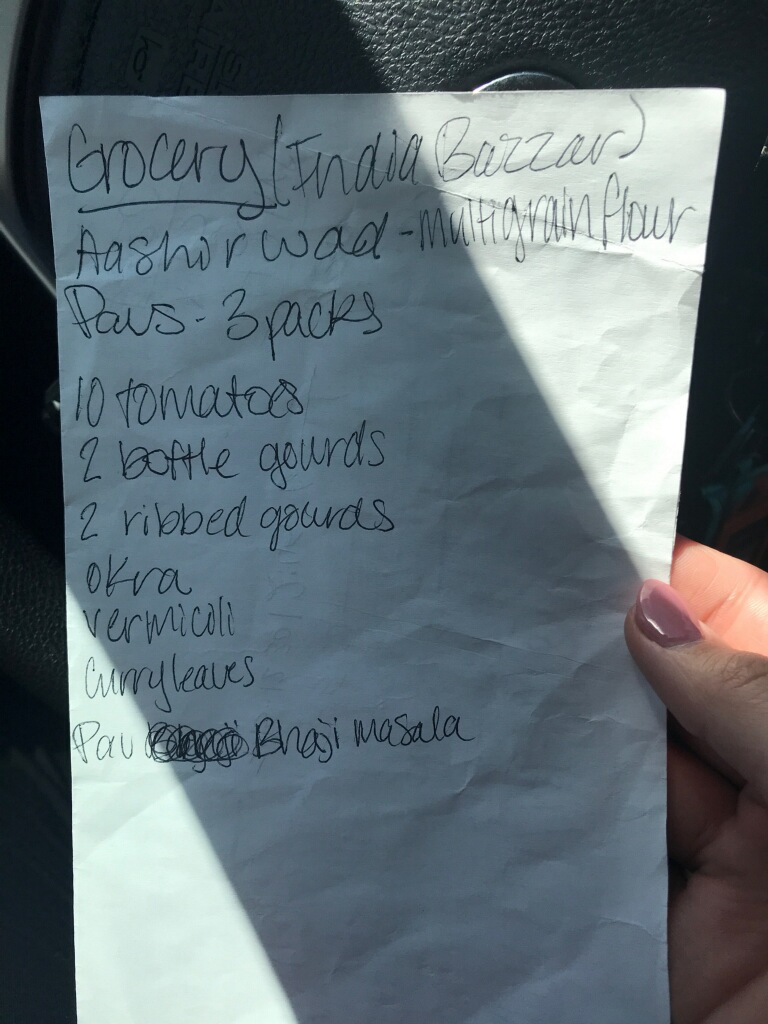 Grocery (India Bazzar)
Aashirwad - multigrain flour
Pavs - 3 packs
10 tomatoes
2 bottle gourds
2 ribbed gourds
okra
vermicoli
Curry leaves
Pav Bhaji masala